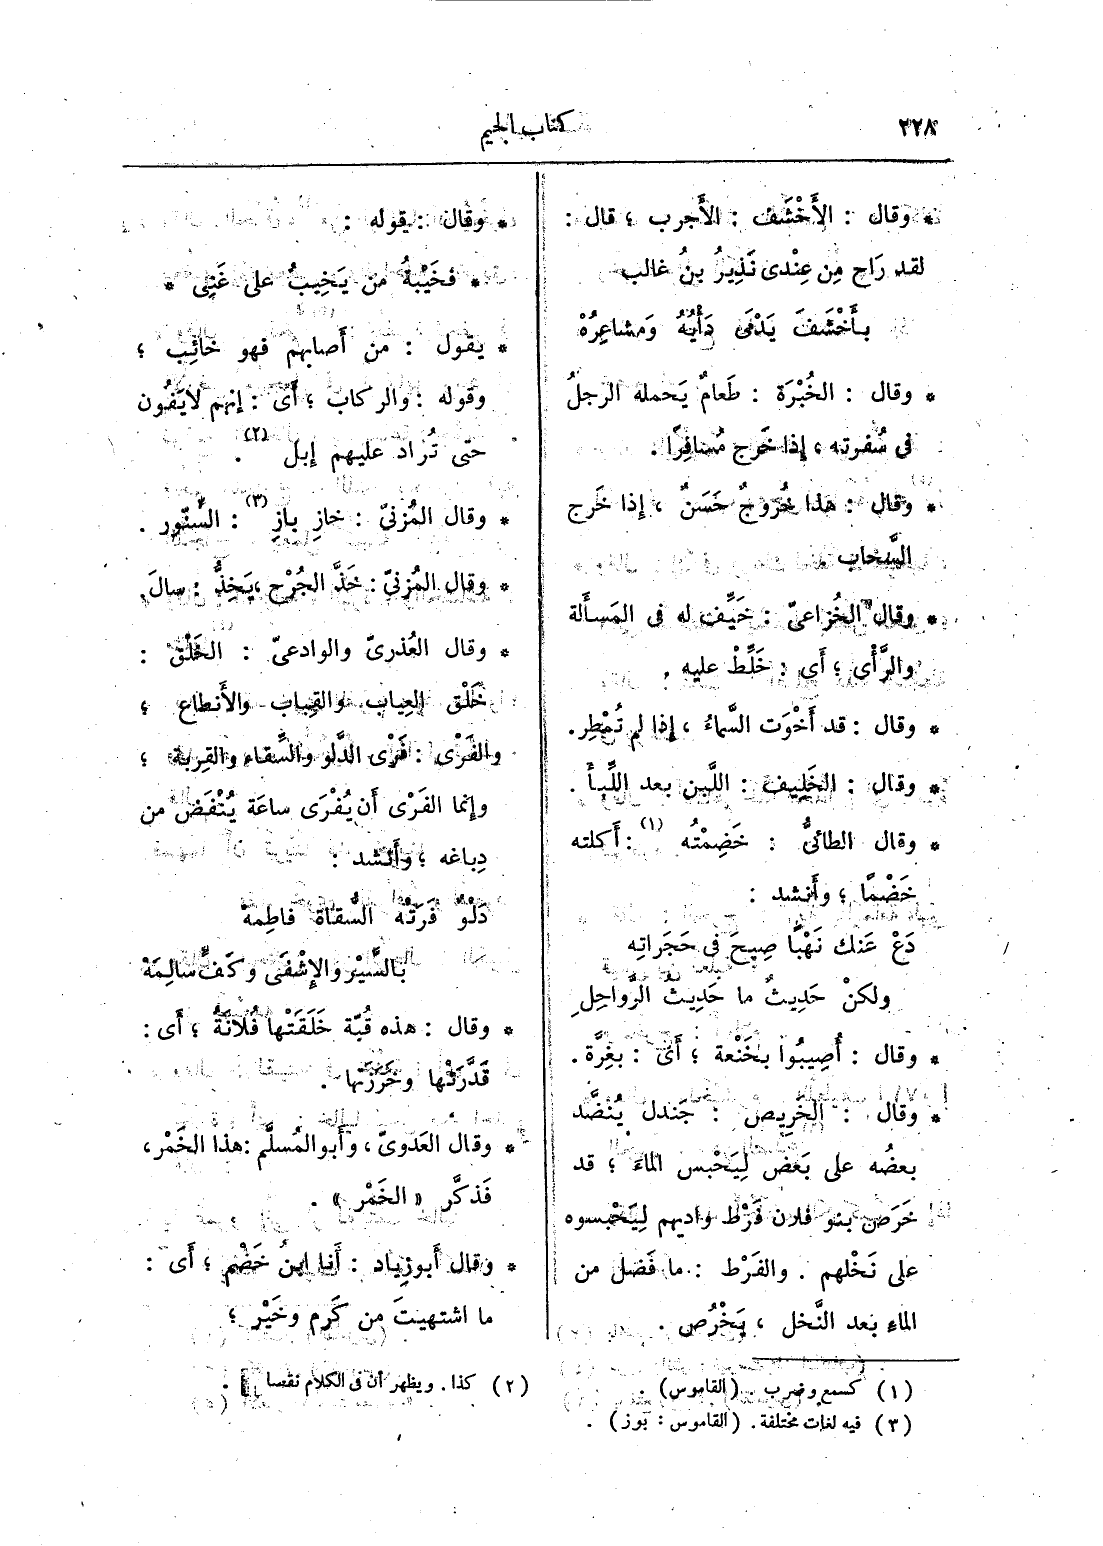 ٢٢٨
كتاب الجيم
* وقال : الأَخْشَف : الأَجرب ؛ قال :
لقد رَاح مِن عِنْدى نَذِيرُ بنُ غالب
بأَخْشَفَ يَدْمَى دَأْيُهُ وَمشاعِرُهْ
* وقال : الخُبْرَة : طَعامٌ يَحمله الرجلُ
فى سُفرته ، إذا خَرج مُسافِرًا .
* وقال : هذا خُرُوجٌ حَسَنٌ ، إذا خَرج
السَّحاب .
* وقال الخُزاعىّ : خَيِّف له فى المَسأَلة
والرَّأْى ؛ أَى : خَلِّطْ عليه .
* وقال : قد أَخْوَت السَّماءُ ، إذا لم تُمْطِر.
* وقال : الخَلِيف : اللَّبن بعد اللِّبأَ .
* وقال الطائىُّ : خَضِمْتُه (١) : أَكلته
خَضْمًا ؛ وأَنشد :
دَعْ عَنك نَهْبًا صِيحَ فى حَجَراتِه
ولكنْ حَدِيثٌ ما حَدِيثُ الرَّواحِلِ
* وقال : أُصِيبُوا بخَنْعة ؛ أَى : بغِرَّة .
* وقال : الخَرِيص : جَندل يُنضَّد
بعضُه على بَعض لِيَحْبس الماءَ ؛ قد
خَرَصَ بنو فلان فَرْط واديهم لِيَحْبسوه
على نَخْلهم . والفَرْط : ما فَضل من
الماءِ بعد النَّخل ، يَخْرُص .
* وقال : قوله :
* فخَيْبةُ من يَخِيبُ على غَنِى *
* يقول : من أَصابهم فهو خائِب ؛
وقوله : والركاب ؛ أَى : إنهم لايَفُون
حتى تُزاد عليهم إبل (٢) .
* وقال المُزنىّ : خازِ بازِ (٣) : السِّنّور .
* وقال المُزنىّ : خَذَّ الجُرْح ، يَخِذُّ : سالَ.
* وقال العُذرىّ والوادعىّ : الخَلْق :
خَلْق العِياب والقِباب والأَنطاع ؛
والفَرْى : فَرْى الدَّلو والسِّقاءِ والقِربة ؛
وإنما الفَرْى أَن يُفْرَى ساعَة يُنْفَض من
دِباغه ؛ وأَنشد :
دَلْوٌ فَرَتْهُ السُّقاة فاطِمهْ
بالسَّيْر والإِشْفَى وكَفٍّ سالِمَهْ
* وقال : هذه قُبّة خَلَقَتْها فُلانَةُ ؛ أَى :
قَدَّرَتْها وخَرَزَتْها .
* وقال العَدوىّ ، وأَبوالمُسلَّم : هذا الخَمْر ،
فَذكَّر « الخَمْر » .
* وقال أَبوزِياد : أَنا ابنُ خَضْم ؛ أَى :
ما اشتهيتَ من كَرم وخَيْر ؛
(١) كسمع وضرب . (القاموس) .
(٢) كذا . ويظهر أن فى الكلام نقصا .
(٣) فيه لغات مختلفة . (القاموس : بوز) .